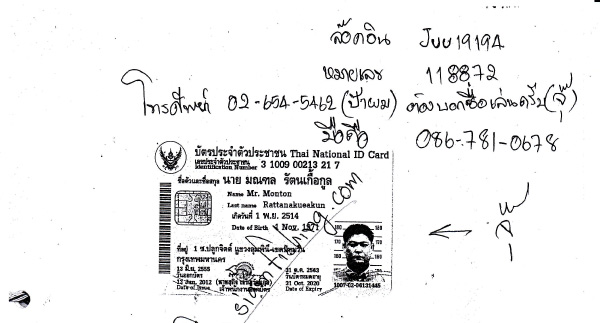 ล๊อคอิน Juu1919A
หมายเลข 118872
โทรศัพท์ 02-654-5462 (ป้าผม) ต้องบอกชื่อเล่นครับ (จุ๊)
มือถือ 086-781-0678
บัตรประจำตัวประชาชน Thai National ID Card
เลขประจำตัวประชาชน
Identification Number 3 1009 00213 21 7
ชื่อตัวและชื่อสกุล นาย มณฑล รัตนเกื้อกูล
Name Mr. Monton
Last name Rattanakueakun
เกิดวันที่ 1 พ.ย. 2514
Date of Birth 1 Nov. 1971
siamfishing.com
ที่อยู่ 1 ซ.ปลูกจิตต์ แขวงลุมพินี เขตปทุมวัน
กรุงเทพมหานคร
13 มิ.ย. 2555
วันออกบัตร
13 Jun. 2012
Date of Issue
เจ้าพนักงานออกบัตร
31 ต.ค. 2563
วันบัตรหมดอายุ
31 Oct. 2020
Date of Expiry
1007-02-06131445
← จุ๊